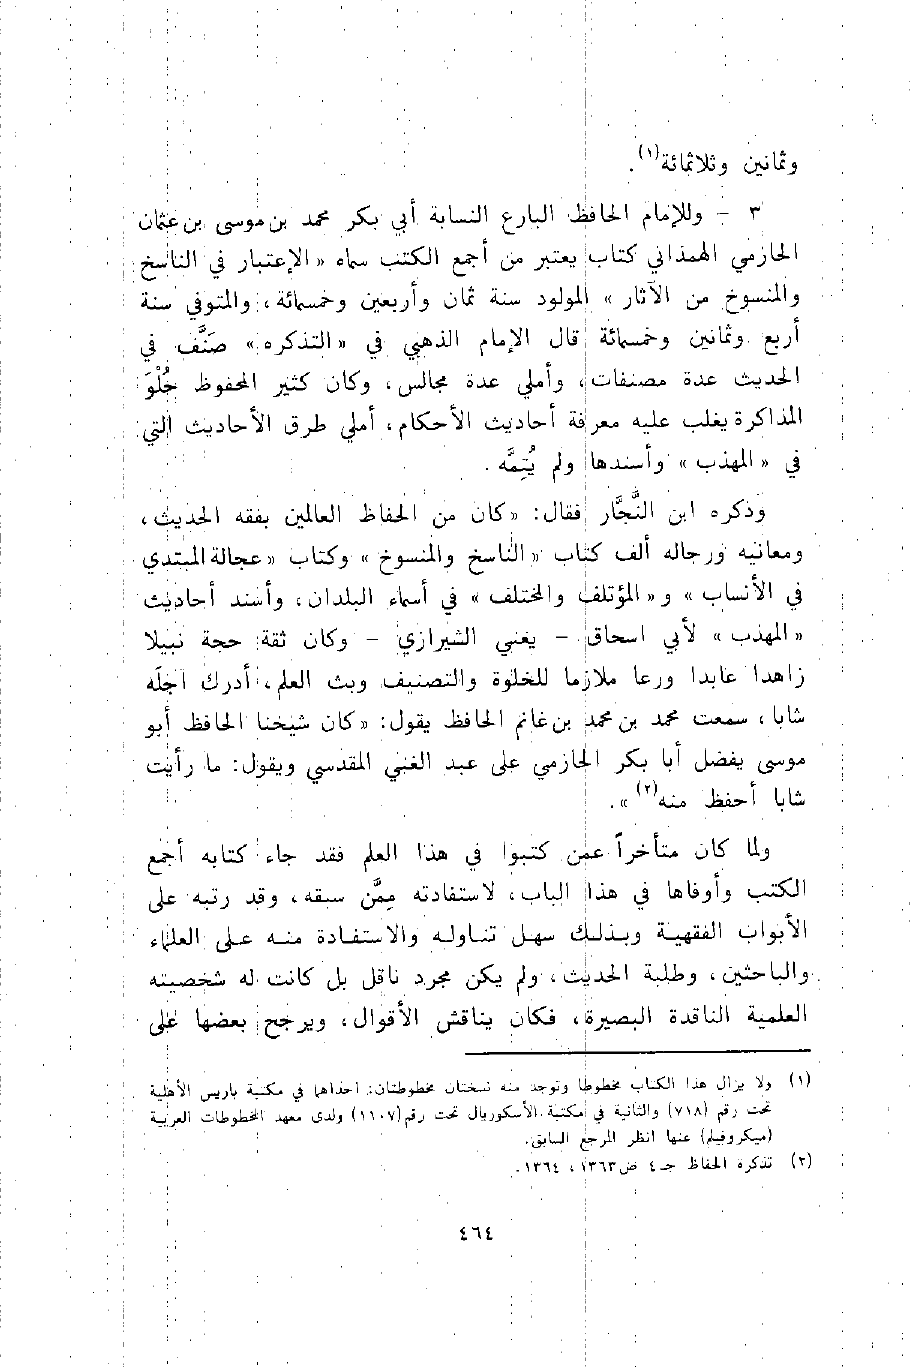 وثمانين وثلاثمائة(١).
٣ - وللإمام الحافظ البارع النسابة أبي بكر محمد بن موسى بن عثمان
الحازمي الهمذاني كتاب يعتبر من أجمع الكتب سماه « الإعتبار في الناسخ
والمنسوخ من الآثار » المولود سنة ثمان وأربعين وخمسمائة، والمتوفي سنة
أربع وثمانين وخمسمائة قال الإمام الذهبي في « التذكره » صَنَّف في
الحديث عدة مصنفات، وأملي عدة مجالس، وكان كثير المحفوظ حُلْوَ
المذاكرة يغلب عليه معرفة أحاديث الأحكام، أملي طرق الأحاديث التي
في « المهذب » وأسندها ولم يُتِمَّه .
وذكره ابن النَّجَّار فقال: « كان من الحفاظ العالمين بفقه الحديث،
ومعانيه ورجاله ألف كتاب « الناسخ والمنسوخ » وكتاب « عجالة المبتدي
في الأنساب » و « المؤتلف والمختلف » في أسماء البلدان، وأسند أحاديث
« المهذب » لأبي اسحاق - يعني الشيرازي - وكان ثقة حجة نبيلا
زاهدا عابدا ورعا ملازما للخلوة والتصنيف وبث العلم، أدرك اجلَه
شابا، سمعت محمد بن محمد بن غانم الحافظ يقول: « كان شيخنا الحافظ أبو
موسى يفضل أبا بكر الحازمي على عبد الغني المقدسي ويقول: ما رأيت
شابا أحفظ منه(٢) ».
ولما كان متأخراً عمن كتبوا في هذا العلم فقد جاء كتابه أجمع
الكتب وأوفاها في هذا الباب، لاستفادته مِمَّن سبقه، وقد رتبه على
الأبواب الفقهية وبذلك سهل تناوله والاستفادة منه على العلماء
والباحثين، وطلبة الحديث، ولم يكن مجرد ناقل بل كانت له شخصيته
العلمية الناقدة البصيرة، فكان يناقش الأقوال، ويرجح بعضها على
(١) ولا يزال هذا الكتاب مخطوطا وتوجد منه نسختان مخطوطتان: احداهما في مكتبة باريس الأهلية
تحت رقم (٧١٨) والثانية في مكتبة الأسكوريال تحت رقم (١١٠٧) ولدى معهد المخطوطات العربية
(ميكروفيلم) عنها انظر المرجع السابق.
(٢) تذكرة الحفاظ جـ٤ ص١٣٦٣، ١٣٦٤.
٤٦٤